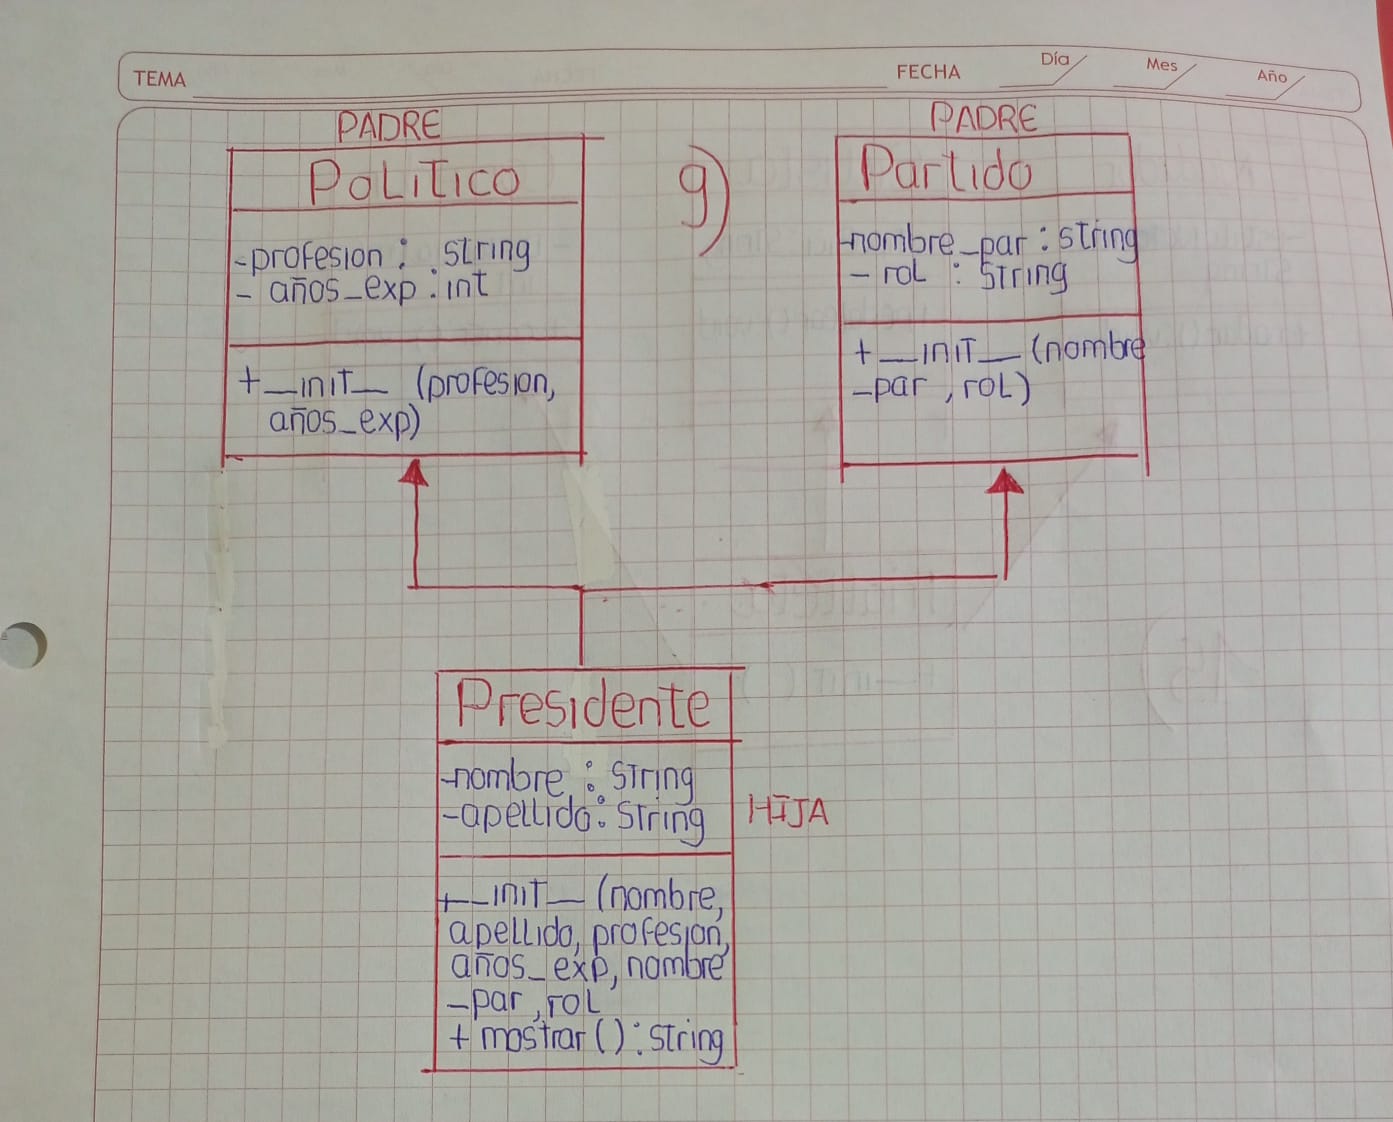 TEMA
FECHA
Día
Mes
Año
PADRE
PoLiTico
-profesion: string
- años_exp: int
+__iniT__ (profesion,
años_exp)
9)
PADRE
Partido
-nombre_par: string
- roL : String
+__iniT__ (nombre
_par, roL)
Presidente
-nombre: String
-apellido: String
HIJA
+__iniT__ (nombre,
apellido, profesion,
años_exp, nombre
_par, roL
+ mostrar(): String